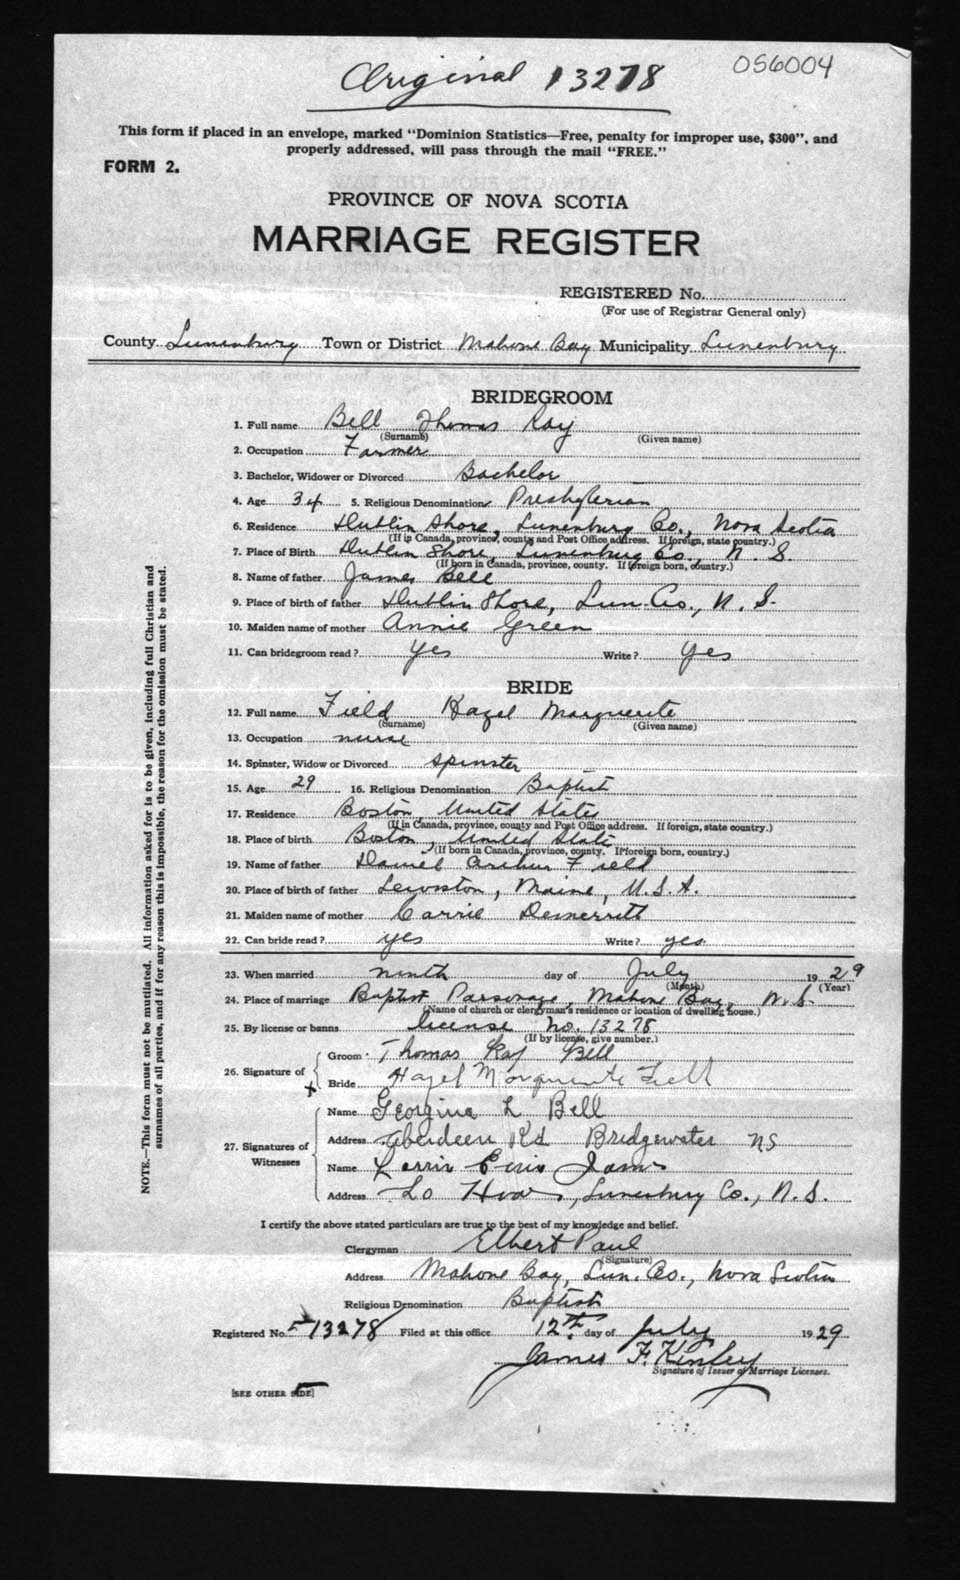 Original 13278
056004
This form if placed in an envelope, marked "Dominion Statistics—Free, penalty for improper use, $300", and
properly addressed, will pass through the mail "FREE."
FORM 2.
PROVINCE OF NOVA SCOTIA
MARRIAGE REGISTER
REGISTERED No.
(For use of Registrar General only)
County Lunenburg Town or District Mahone Bay Municipality Lunenburg
BRIDEGROOM
1. Full name Bell Thomas Ray
(Surname) (Given name)
2. Occupation Farmer
3. Bachelor, Widower or Divorced Bachelor
4. Age 34 5. Religious Denomination Presbyterian
6. Residence Dublin Shore, Lunenburg Co., Nova Scotia
(If in Canada, province, county and Post Office address. If foreign, state country.)
7. Place of Birth Dublin Shore, Lunenburg Co., N. S.
(If born in Canada, province, county. If foreign born, country.)
8. Name of father James Bell
9. Place of birth of father Dublin Shore, Lun. Co., N. S.
10. Maiden name of mother Annie Green
11. Can bridegroom read? yes Write? yes
BRIDE
12. Full name Field Hazel Marguerite
(Surname) (Given name)
13. Occupation nurse
14. Spinster, Widow or Divorced spinster
15. Age 29 16. Religious Denomination Baptist
17. Residence Boston, United States
(If in Canada, province, county and Post Office address. If foreign, state country.)
18. Place of birth Boston, United States
(If born in Canada, province, county. If foreign born, country.)
19. Name of father Daniel Arthur Field
20. Place of birth of father Lewiston, Maine, U.S.A.
21. Maiden name of mother Carrie Demerritt
22. Can bride read? yes Write? yes
23. When married ninth day of July 1929
(Month) (Year)
24. Place of marriage Baptist Parsonage, Mahone Bay, N.S.
(Name of church or clergyman's residence or location of dwelling house.)
25. By license or banns license No. 13278
(If by license, give number.)
26. Signature of
Groom Thomas Ray Bell
Bride Hazel Marguerite Field
27. Signatures of Witnesses
Name Georgina L Bell
Address Aberdeen Rd Bridgewater NS
Name
Address Lunenburg Co., N. S.
I certify the above stated particulars are true to the best of my knowledge and belief.
Clergyman Elbert Paul
(Signature)
Address Mahone Bay, Lun. Co., Nova Scotia
Religious Denomination Baptist
Registered No. 13278 Filed at this office 12th day of July 1929
James F. Kinley
Signature of Issuer of Marriage Licenses.
[SEE OTHER SIDE]
NOTE.—This form must not be mutilated. All information asked for is to be given, including full Christian and
surnames of all parties, and if for any reason this is impossible, the reason for the omission must be stated.